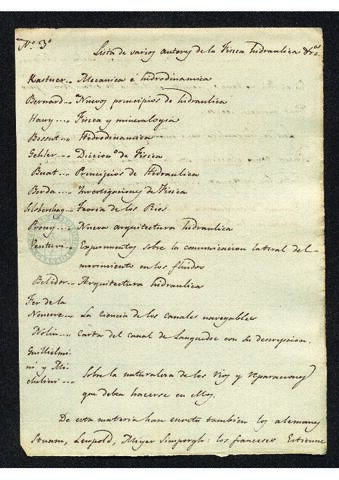 Nº 3º
Lista de varios autores de la Fisica hidraulica &ca
Kastner... Mecanica é hidrodinamica
Bernard... Nuevos principios de hidraulica
Hauy... Fisica y mineralogia
Bossut... Hidrodinamica
Gehler... Diccionº de Fisica
Buat... Principios de Hidraulica
Borda... Investigaciones de Fisica
Teoria de los Rios
Prony... Nueva arquitectura hidraulica
Venturi... Experimentos sobre la comunicacion lateral del
movimiento en los fluidos
Belidor... Arquitectura hidraulica
Fer de la
Nouerre... La Ciencia de los canales navegables
Nolin... Carta del canal de Languedoc con su descripcion.
Guillielmi
ni y Mi
chelini... Sobre la naturaleza de los rios y reparaciones
que deben hacerse en ellos.
De esta materia han escrito tambien los alemanes
Sturm, Leupold, los franceses Estienne